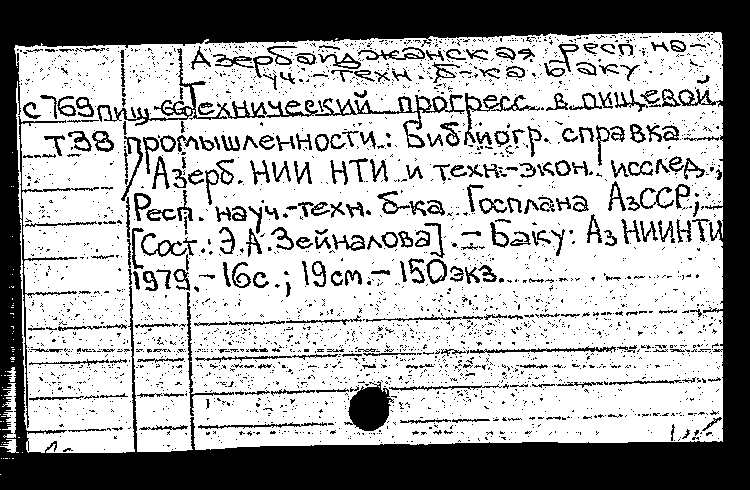 Азербайджанская респ. на-
уч.-техн. б-ка. Баку
с769пищ-660 Технический прогресс в пищевой
Т38 промышленности.: Библиогр. справка
/ Азерб. НИИ НТИ и техн.-экон. исслед.,
Респ. науч.-техн. б-ка Госплана АзССР;
[Сост.: Э.А.Зейналова]. – Баку: АзНИИНТИ
1979. – 16с.; 19см. – 150экз.